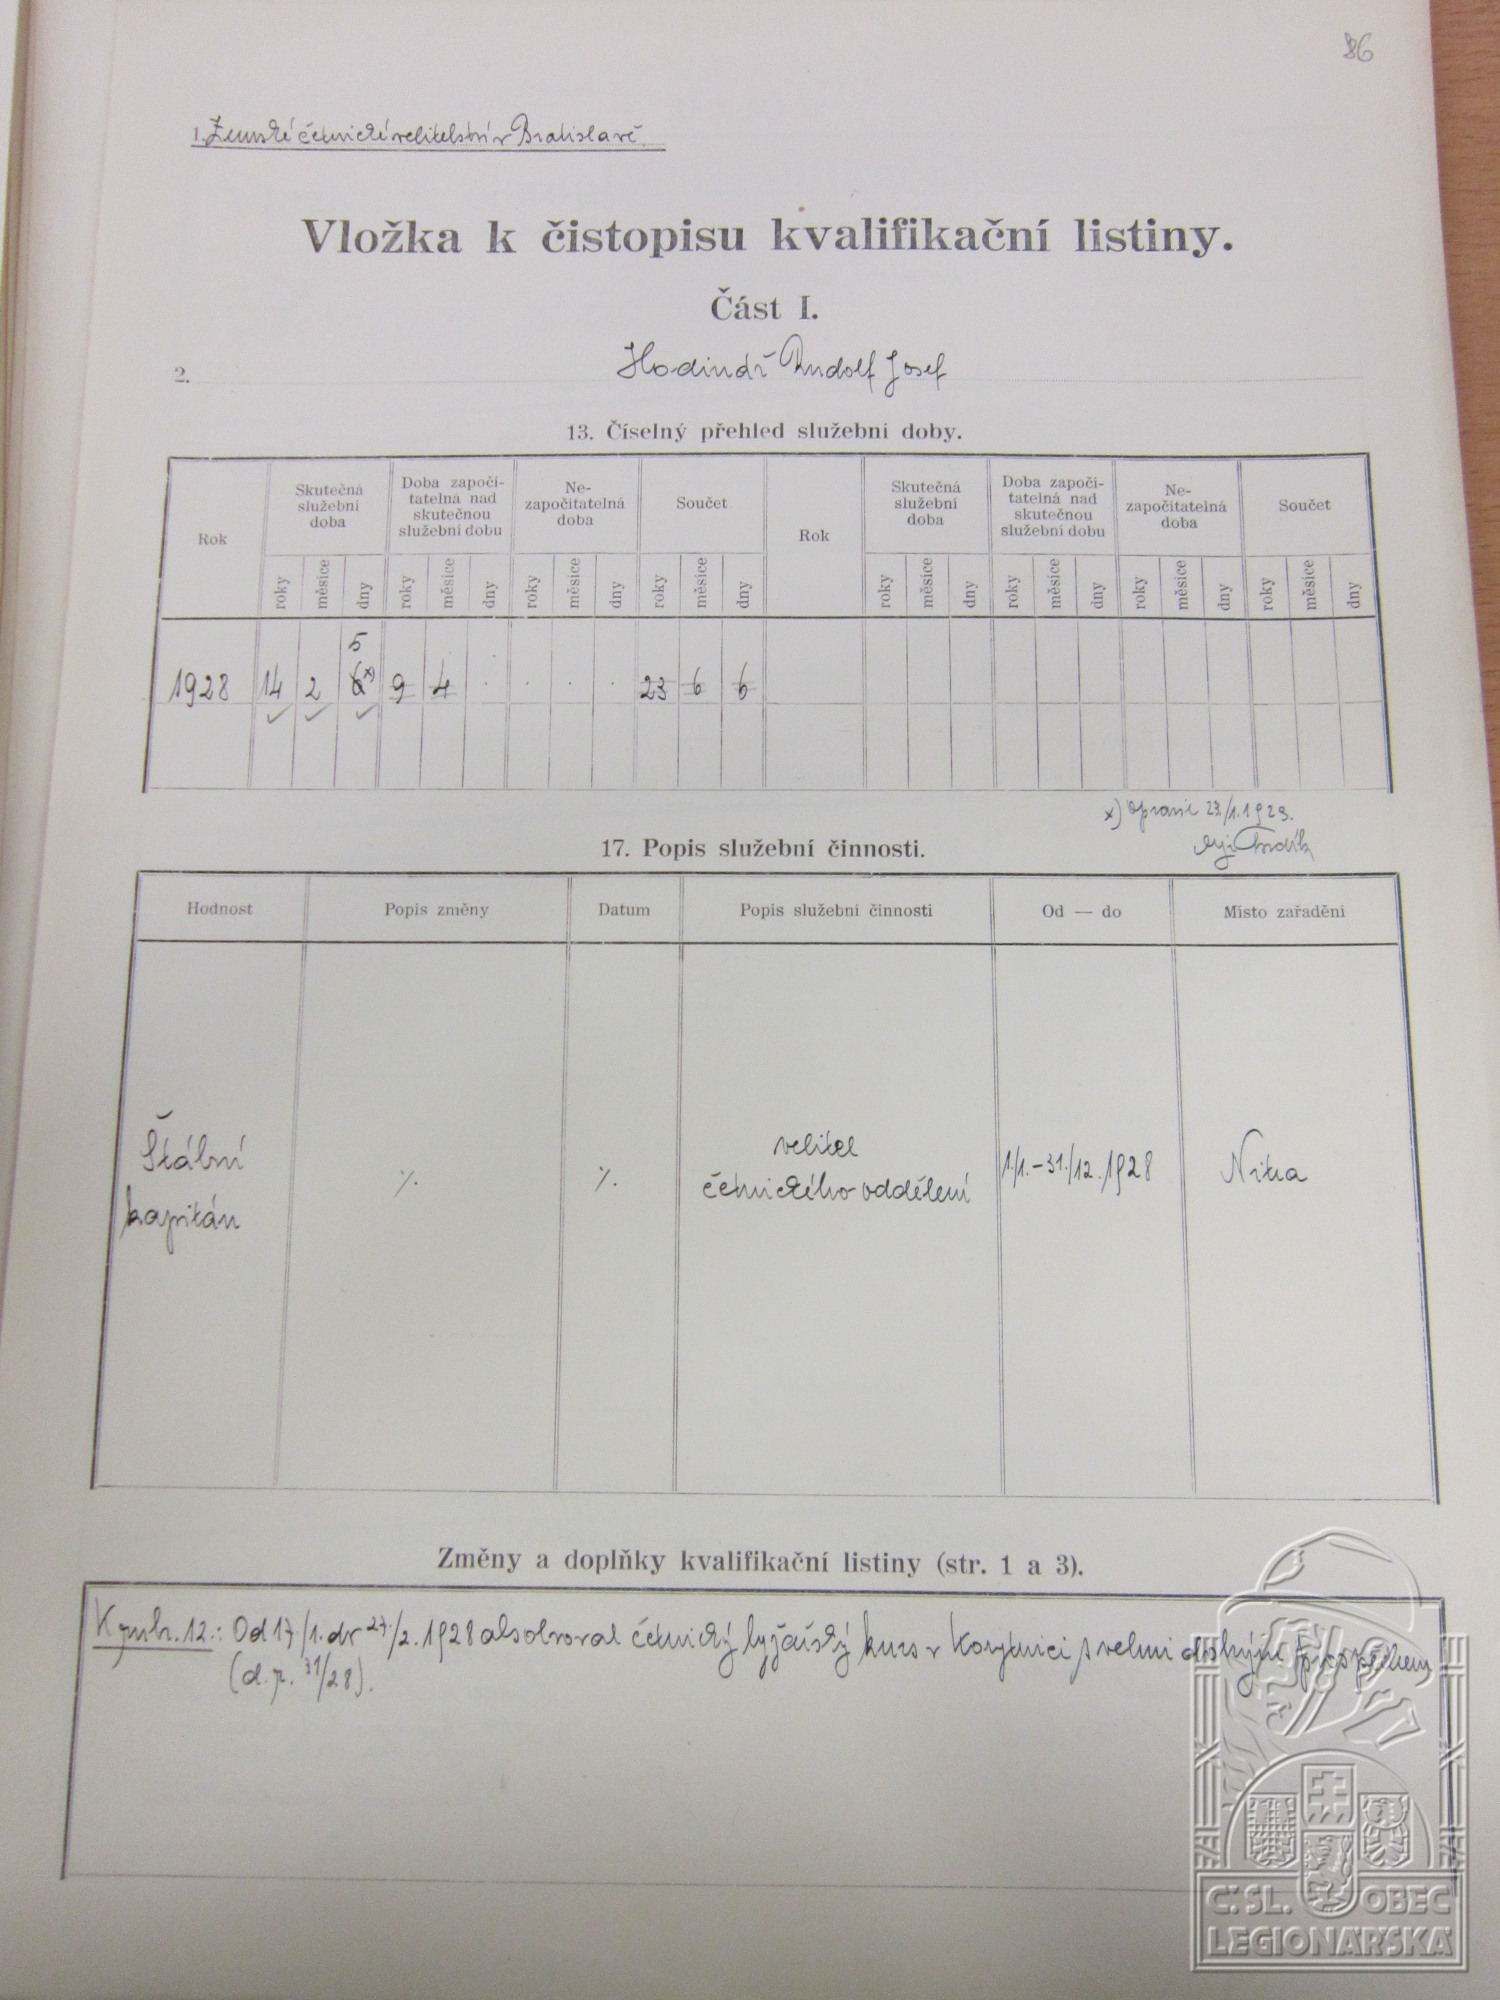 86
1. Zemské četnické velitelství v Bratislavě.
Vložka k čistopisu kvalifikační listiny.
Část I.
2. Hodinář Rudolf Josef
13. Číselný přehled služební doby.
Rok Skutečná služební doba Doba započi-tatelná nad skutečnou služební dobu Ne-započitatelná doba Součet Rok Skutečná služební doba Doba započi-tatelná nad skutečnou služební dobu Ne-započitatelná doba Součet
roky měsíce dny roky měsíce dny roky měsíce dny roky měsíce dny roky měsíce dny roky měsíce dny roky měsíce dny roky měsíce dny
5
1928 14 2 6x) 9 4 . . . . 23 6 6
x) Opravil 23./1.1929.
17. Popis služební činnosti.
Hodnost Popis změny Datum Popis služební činnosti Od — do Místo zařadění
Štábní kapitán ·/. ·/. velitel četnického oddělení 1./1.–31./12.1928 Nitra
Změny a doplňky kvalifikační listiny (str. 1 a 3).
K rubr. 12.: Od 17/1. do 27./2. 1928 absolvoval četnický lyžařský kurs v Korytnici s velmi dobrým prospěchem
(d. r. 31/28).
Č.SL. OBEC
LEGIONÁŘSKÁ